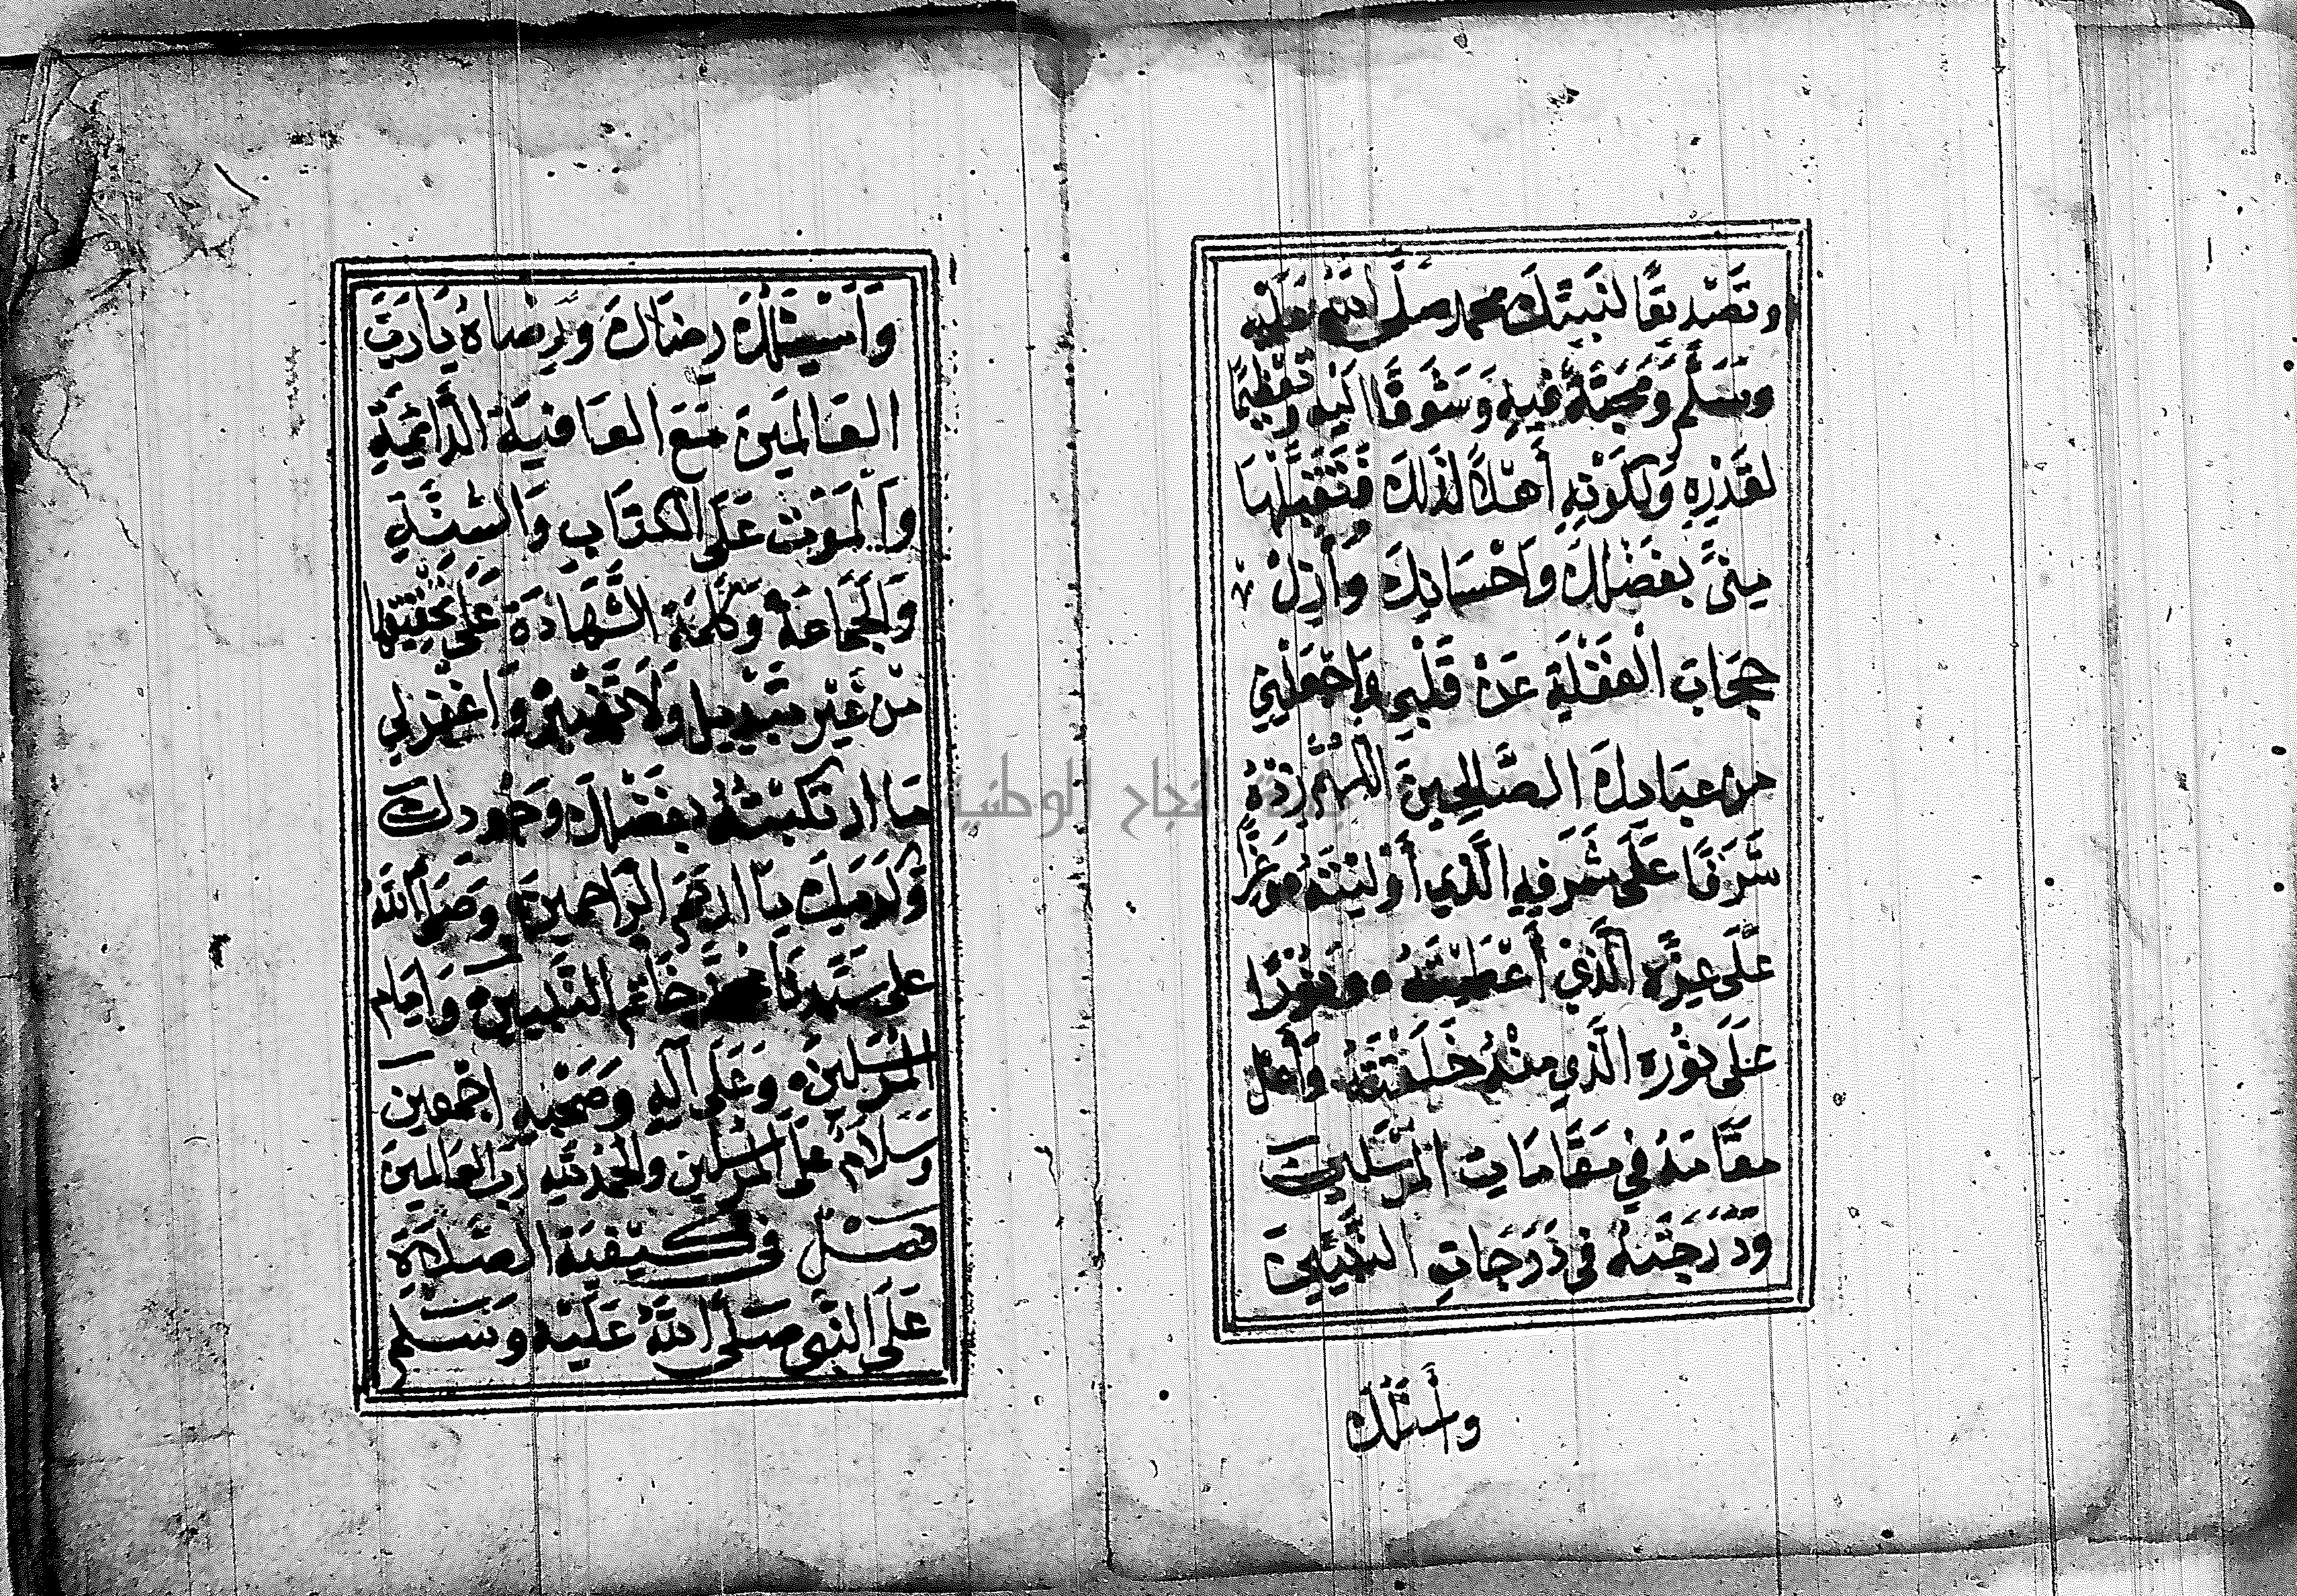 وتَصْدِيقًا لنَبِيّكَ محمد صَلَّى اللهُ عَلَيْهِ
وسَلَّمَ وَمَحَبَّةً فيهِ وَشَوقًا اليْهِ وتَعْظِيمًا
لقَدْرِهِ وَلِكَوْنِهِ أَهْلاً لذَلكَ فَتَقَبَّلْهَا
مِنّي بفَضْلِكَ وَاحْسَانِكَ وأَزِلْ
حِجَابَ الْغَفْلَةِ عَنْ قَلْبِي وَاجْعَلْنِي
من عِبَادِكَ الصَّالحِينَ اللَّهُمَّ زِدْهُ
شَرَفًا عَلَى شَرَفِهِ الَّذِي أَوْلَيْتَهُ وَعِزًّا
عَلَى عِزِّهِ الَّذِي أَعْطَيْتَهُ ونُورًا
عَلَى نُورِهِ الَّذِي مِنْهُ خَلَقْتَهُ وَأَعْلِ
مقَامَهُ في مَقَامَاتِ المُرْسَلِينَ
وَدَرَجَتَهُ في دَرَجَاتِ النَّبِيِّينَ
وأسئَلُكَ
وَأَسْئَلُكَ رِضَاكَ وَرِضَاهُ يَارَبَّ
العَالَمِينَ مَعَ العَافِيَةِ الدَّائِمَةِ
وَالمَوْتَ عَلَى الكتَابِ وَالسُّنَّةِ
وَالجَمَاعَةِ وَكَلمَةِ الشَّهَادَةِ عَلَى تحْقِيقِهَا
مِن غَيْرِ تَبْدِيلٍ وَلَا تَغْيِيرٍ وَاغْفِرْ لِي
مَا ارتكَبْتهُ بفَضْلِكَ وَجُودِكَ
وَكَرَمِكَ يَا ارحَمَ الرَّاحمِينَ وَصَلَّى اللهُ
عَلى سَيّدِنَا محمدٍ خَاتَمِ النَّبِيينَ وَامَامِ
المُرْسَلِينَ وَعَلَى آلِهِ وَصَحْبِهِ اجْمَعِين
وَسَلَامٌ عَلَى المُرْسَلِينَ وَالحَمْدُ للهِ رَبِّ العَالَمِينَ
فَصْل في كَيْفيَةِ الصَّلَاةِ
عَلَى النَّبِي صَلَّى اللهُ عَلَيْهِ وَسَلم
النجاح الوطنية